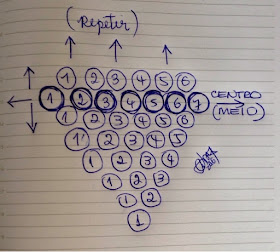 (Repetir)
1 2 3 4 5 6
1 2 3 4 5 6 7 CENTRO
(MEIO)
1 2 3 4 5 6
1 2 3 4 5
1 2 3 4
1 2 3
1 2
1